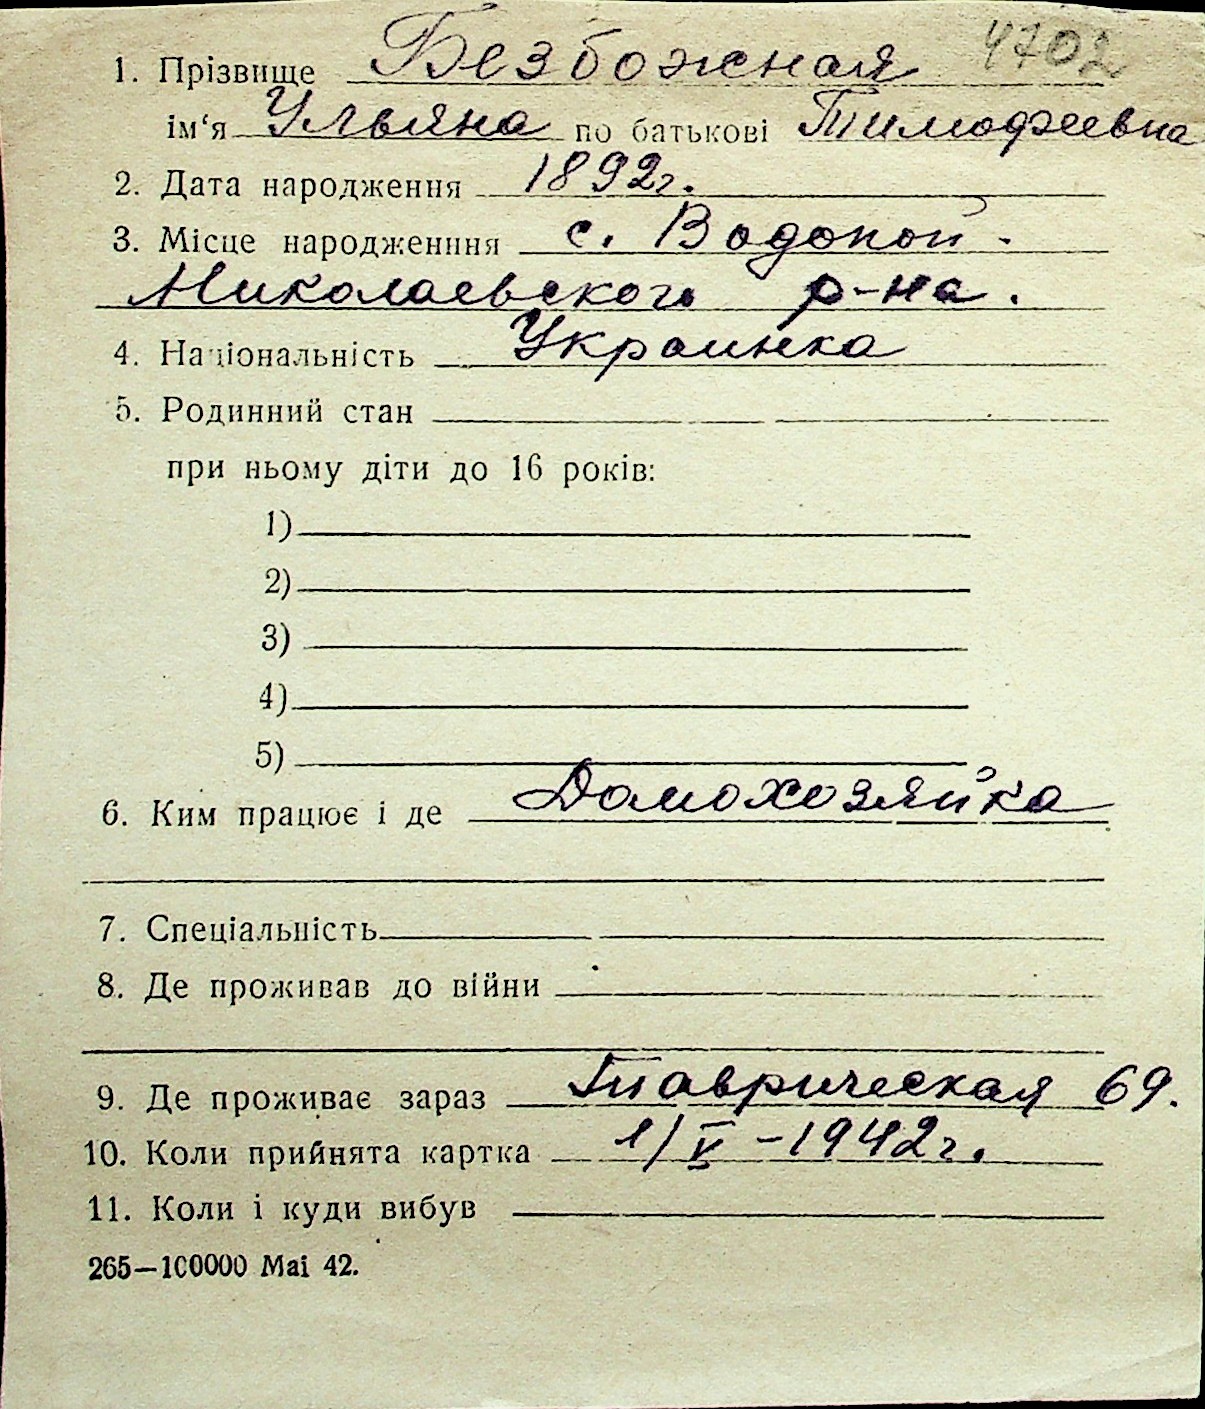 4702
1. Прізвище Безбожная
ім‘я Ульяна по батькові Тимофеевна
2. Дата народження 1892г.
3. Місце народженння с. Водопой.
Николаевского р-на.
4. Національність Украинка
5. Родинний стан
при ньому діти до 16 років:
1)
2)
3)
4)
5)
6. Ким працює і де Домохозяйка
7. Спеціальність
8. Де проживав до війни
9. Де проживає зараз Таврическая 69.
10. Коли прийнята картка 1/V-1942г.
11. Коли і куди вибув
265—100000 Mai 42.